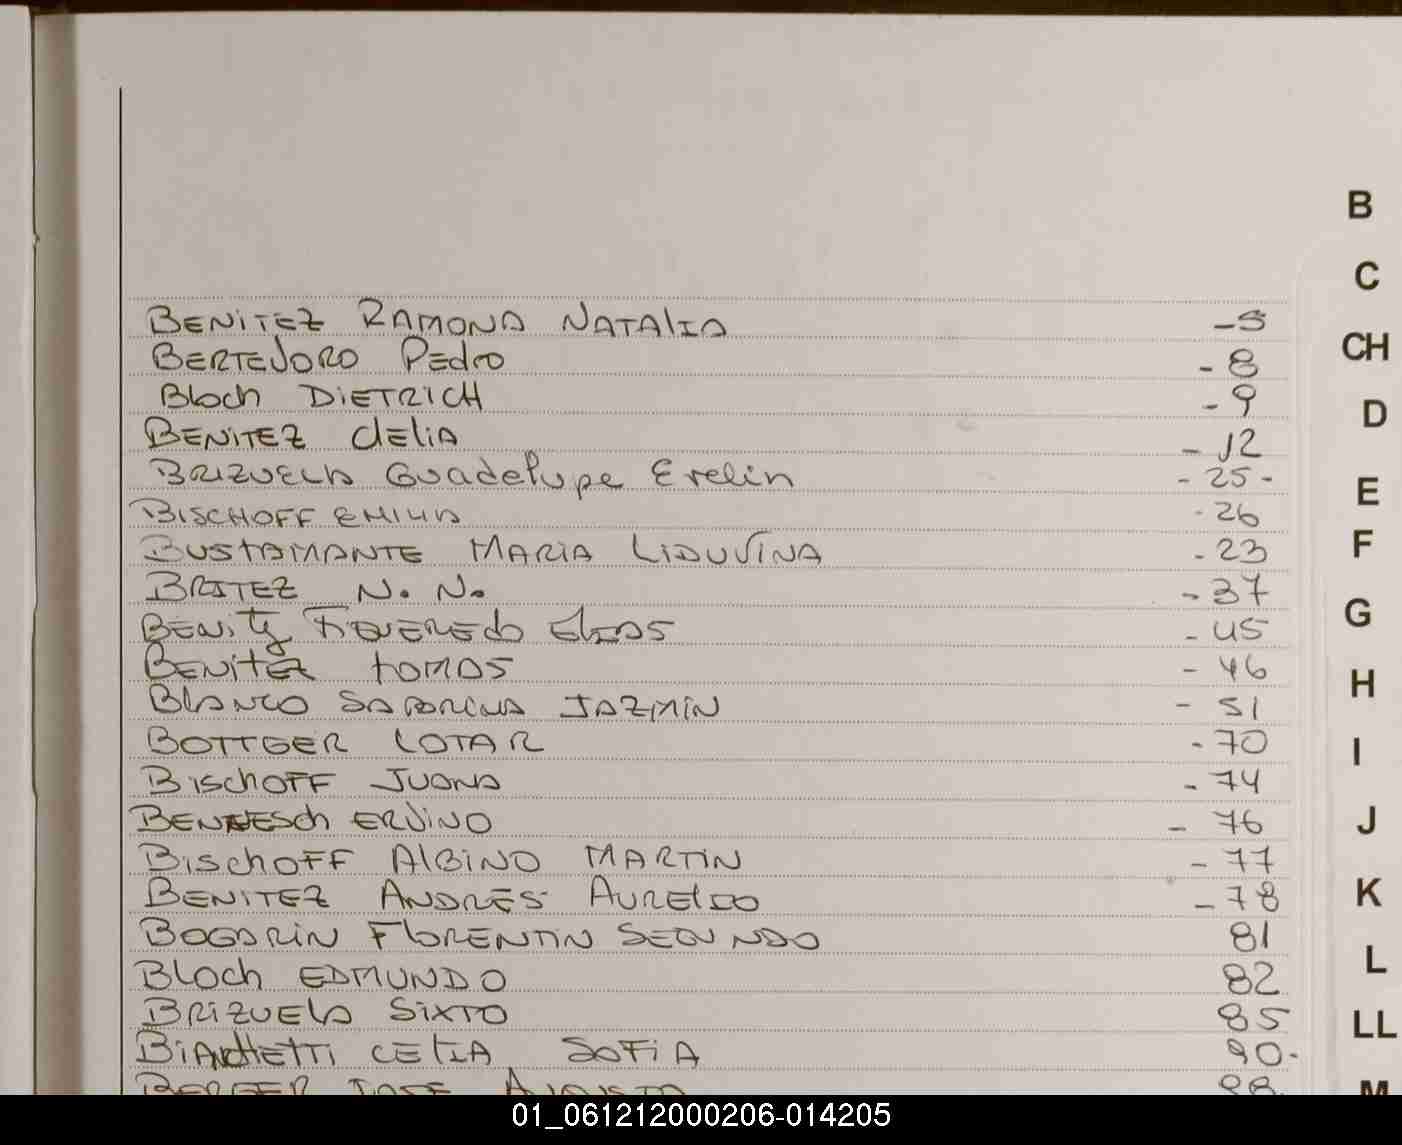 B
C
CH
D
E
F
G
H
I
J
K
L
LL
M
BENITEZ RAMONA NATALIA -5
BERTEJORO Pedro -8
Bloch DIETRICH -9
BENITEZ Clelia -12
BRIZUELA Guadelupe Evelin -25-
BISCHOFF EMILIA -26
BUSTAMANTE MARIA LIDUVINA -23
BRITEZ N. N. -37
BENITEZ FIGUEREDO ELIAS -45
BENITEZ TOMAS -46
BLANCO SABRINA JAZMIN - 51
BOTTGER LOTAR -70
BISCHOFF JUANA -74
ERVINO - 76
BISCHOFF ALBINO MARTIN -77
BENITEZ ANDRES AURELIO -78
BOGARIN FLORENTIN SEGUNDO 81
BLOCH EDMUNDO 82
BRIZUELA SIXTO 85
BIANCHETTI CELIA SOFIA 90-
BERGER JOSE AUGUSTO
01_061212000206-014205